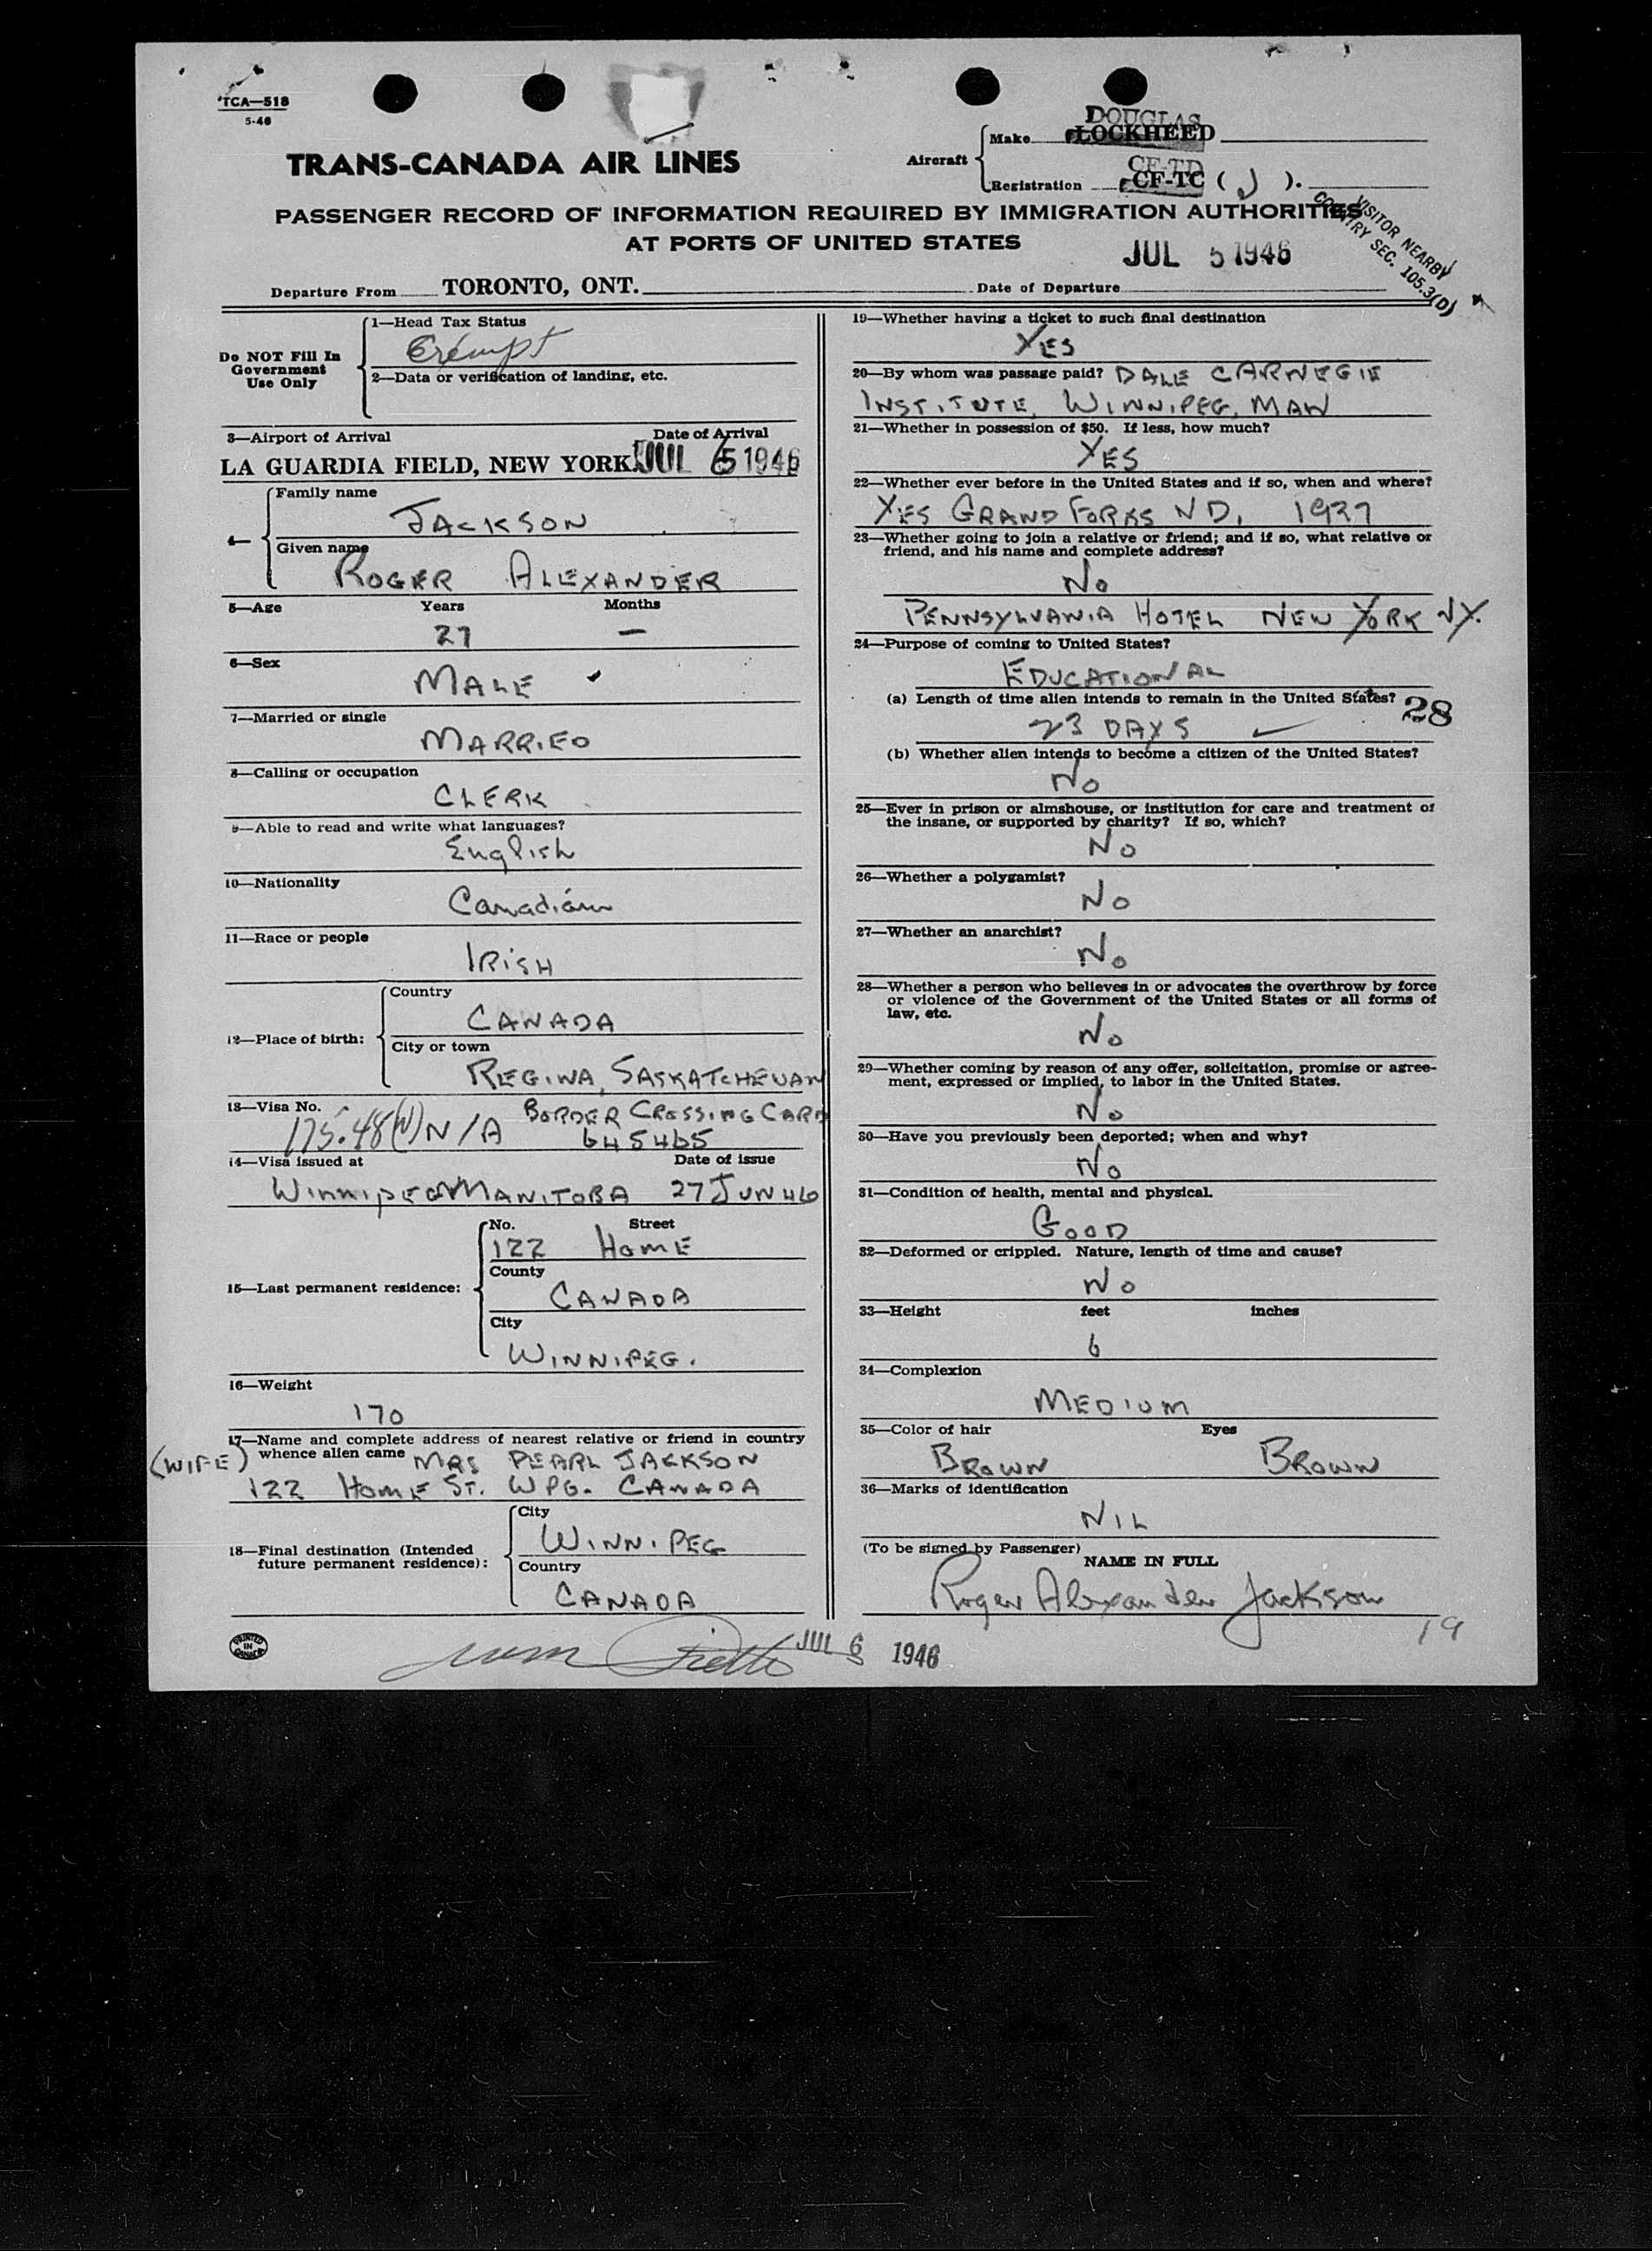 TCA—518
5-46
TRANS-CANADA AIR LINES
Aircraft
Make DOUGLAS
LOCKHEED
Registration CF-TD
CF-TC ( J ).
PASSENGER RECORD OF INFORMATION REQUIRED BY IMMIGRATION AUTHORITIES
AT PORTS OF UNITED STATES
VISITOR NEARBY
COUNTRY SEC. 105.3(D)
JUL 5 1946
Departure From TORONTO, ONT. Date of Departure
Do NOT Fill In
Government
Use Only
1—Head Tax Status
Exempt
2—Data or verification of landing, etc.
3—Airport of Arrival Date of Arrival
LA GUARDIA FIELD, NEW YORK. JUL 6 1946
4—
Family name
JACKSON
Given name
ROGER ALEXANDER
5—Age Years Months
27 —
6—Sex
MALE
7—Married or single
MARRIED
8—Calling or occupation
CLERK
9—Able to read and write what languages?
English
10—Nationality
Canadian
11—Race or people
IRISH
12—Place of birth:
Country
CANADA
City or town
REGINA, SASKATCHEWAN
13—Visa No. BORDER CROSSING CARD
175.48(N) N/A 645465
14—Visa issued at Date of issue
WINNIPEG MANITOBA 27 JUN 46
15—Last permanent residence:
No. Street
122 HOME
County
CANADA
City
WINNIPEG.
16—Weight
170
17—Name and complete address of nearest relative or friend in country
(WIFE) whence alien came MRS PEARL JACKSON
122 HOME ST. WPG. CANADA
18—Final destination (Intended
future permanent residence):
City
WINNIPEG
Country
CANADA
19—Whether having a ticket to such final destination
YES
20—By whom was passage paid? DALE CARNEGIE
INSTITUTE, WINNIPEG, MAN
21—Whether in possession of $50. If less, how much?
YES
22—Whether ever before in the United States and if so, when and where?
YES GRAND FORKS ND, 1927
23—Whether going to join a relative or friend; and if so, what relative or
friend, and his name and complete address?
NO
PENNSYLVANIA HOTEL NEW YORK NY.
24—Purpose of coming to United States?
EDUCATIONAL
(a) Length of time alien intends to remain in the United States? 28
23 DAYS
(b) Whether alien intends to become a citizen of the United States?
NO
25—Ever in prison or almshouse, or institution for care and treatment of
the insane, or supported by charity? If so, which?
NO
26—Whether a polygamist?
NO
27—Whether an anarchist?
NO
28—Whether a person who believes in or advocates the overthrow by force
or violence of the Government of the United States or all forms of
law, etc.
NO
29—Whether coming by reason of any offer, solicitation, promise or agree-
ment, expressed or implied, to labor in the United States.
NO
30—Have you previously been deported; when and why?
NO
31—Condition of health, mental and physical.
GOOD
32—Deformed or crippled. Nature, length of time and cause?
NO
33—Height feet inches
6
34—Complexion
MEDIUM
35—Color of hair Eyes
BROWN BROWN
36—Marks of identification
NIL
(To be signed by Passenger)
NAME IN FULL
Roger Alexander Jackson
19
PRINTED
IN
CANADA
JUL 6 1946